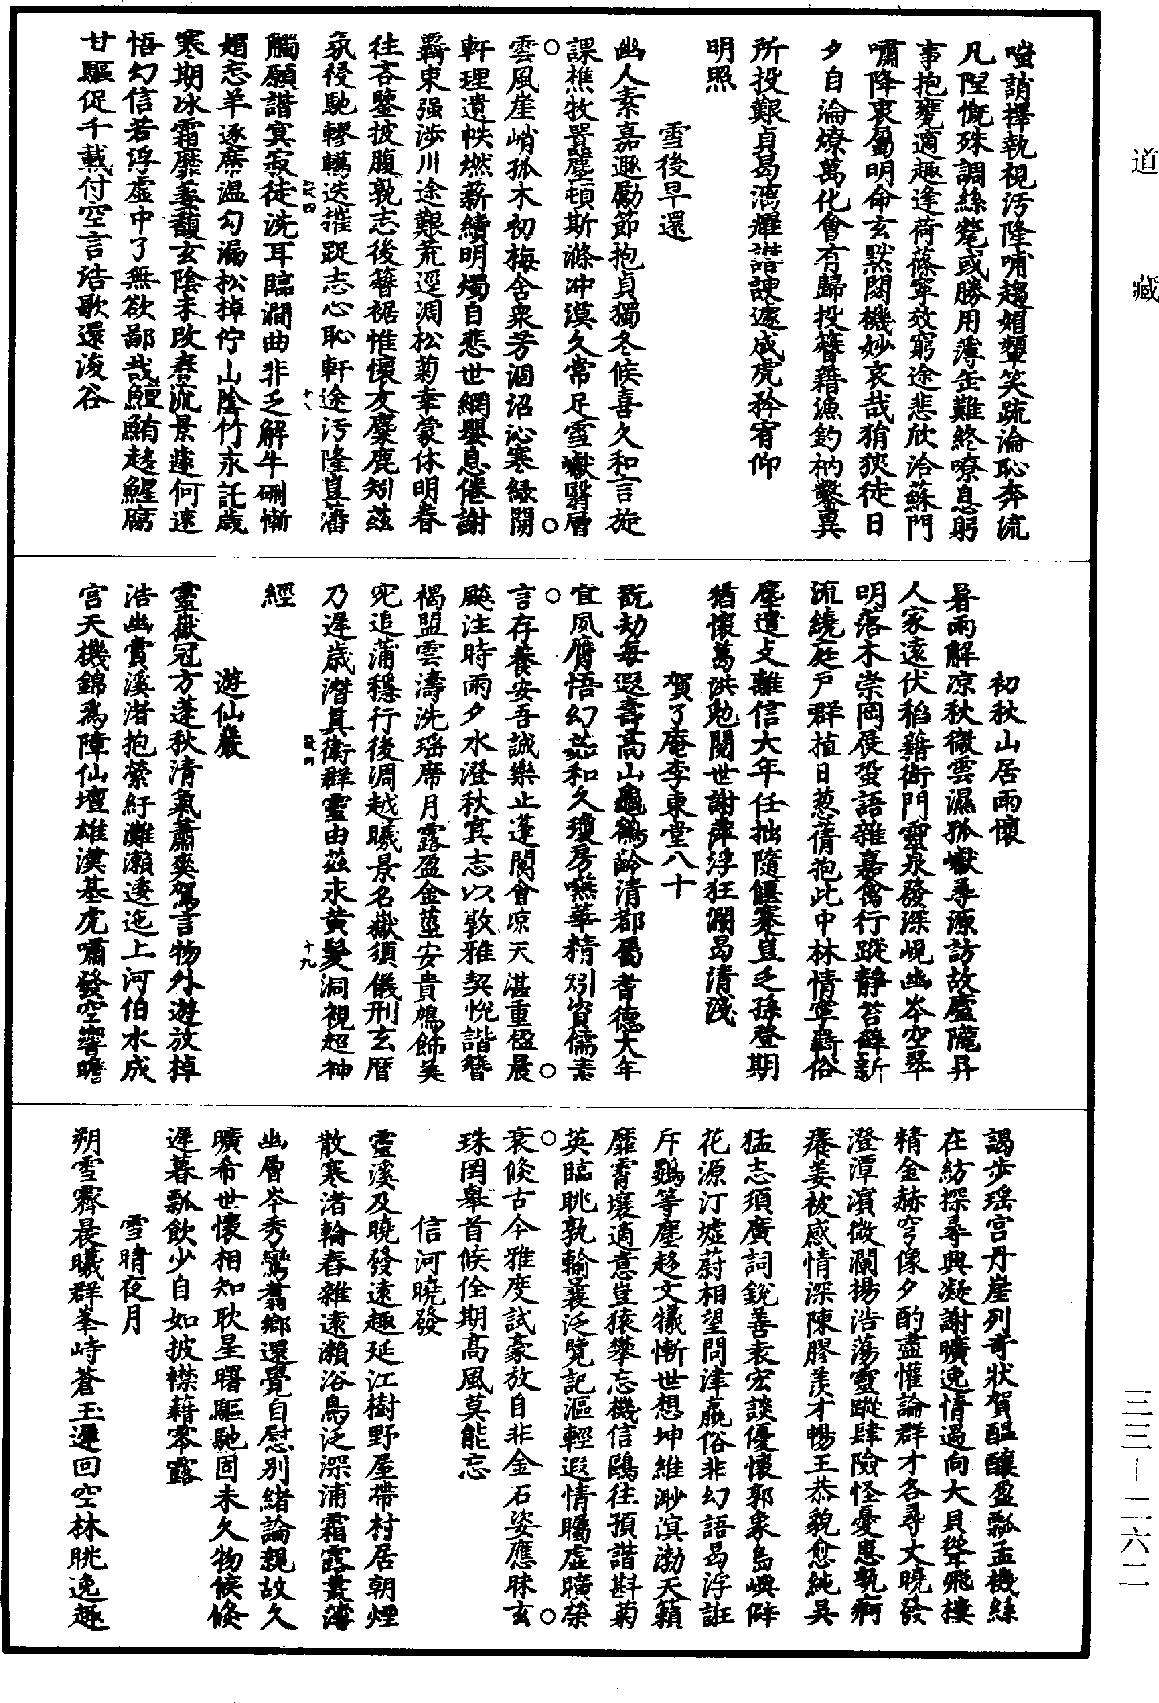 道藏
嗤誚擇執視污隆哺趨媚顰笑疏淪恥奔流
凡陞慨殊調絲甃或勝用薄缶難終嘹息躬
事抱甕適趣逢荷蓧寧效窮途悲欣洽蘇門
嘯降衷勗明命玄默閟機妙哀哉狷狹徒日
夕自淪燎萬化會有歸投簪籍漁釣枘鑿異
所投艱貞曷鴻耀諎諛遽成虎矜宥仰
明照
雪後早還
幽人素嘉遯勵節抱貞獨冬候喜久和言旋
課樵牧囂塵頓斯滌冲漠久常足雪巘翳層
雲風崖峭孤木初梅含衆芳涸沼沁寒綠閉
軒理遺帙燃薪續明燭自悲世網嬰息倦謝
覊束强涉川途艱荒逕凋松菊幸蒙休明眷
往吝鑒披腹孰志後簪裾惟懷友麋鹿矧茲
氛祲馳轇轕迭摧踧志心恥軒途污隆豈藩
觸願諧寞寂徒洗耳臨澗曲非乏解牛硎慚
媚忘羊逐縻温勾漏松掉佇山陰竹永託歲
寒期冰霜靡羞馥玄陰未改春流景遽何速
悟幻信若浮虛中了無欲鄙哉鱣鮪趍鯹腐
甘驅促千載付空言浩歌還浚谷
初秋山居雨懷
暑雨解凉秋微雲濕孤巘尋源訪故廬隴舁
人家遠伏稻籍衡門靈泉發深峴幽岑空翠
明落木崇岡展蛩語雜嘉禽行蹤靜苔蘚新
流繞庭戶群植日葱蒨抱此中林情寧覊俗
塵遣支離信大年任拙隨偃蹇豈乏孫登期
猶懷葛洪勉閱世謝萍浮狂瀾曷清淺
賀了庵李東堂八十
翫劫每遐壽高山龜鶴齡清都屬耆德大年
宜夙膺悟幻茹和久瓊房嚥華精矧資儒素
言存養安吾誠樂止蓬閬會凉天湛重極晨
飈注時雨夕水澄秋寘志以敦雅契恱諧簪
褐盟雲濤洗瑶席月露盈金莖安貴鴆飾美
兕追蒲穩行後凋越曦景名嶽須儀刑玄曆
乃遲歲潛真衛群靈由茲永黃髮洞視超神
經
遊仙巖
靈嶽冠方蓬秋清氣肅爽駕言物外遊放棹
浩幽賞溪渚抱縈紆灘瀨逶迤上河伯水成
宮天機錦爲障仙壇雄漢基虎嘯發空響瞻
謁步瑶宮丹崖列奇狀賀醞釀盈瓢孟機絲
在紡探尋興凝謝曠逸情過向大貝聳飛棲
精金赫穹像夕酌盡惟論群才各尋丈曉發
澄潭濱微瀾揚浩蕩靈蹤肆險怪憂患軏痾
癢姜被感情深陳膠羡才暢王恭貌愈純吳
猛志須廣詞銳善袁宏談優懷郭象島嶼僻
花源汀墟蔚相望問津羸俗非幻語曷浮誑
斥鷃等塵趍文犧慚世想坤維渺溟渤天籟
靡霄壤適意豈猿攀忘機信鷗往預諧斟菊
英臨眺孰輸襄泛覽記漚輕遐情矚虛曠榮
衰倏古今雅度試豪放自非金石姿應眛玄
珠罔舉首候佺期高風莫能忘
信河曉發
靈溪及曉發遠趣延江樹野屋帶村居朝煙
散寒渚輪舂雜遠瀨浴鳥泛深浦霜露叢薄
幽層岑秀鸞翥鄉還覺自慰別緒論親故久
曠希世懷相知耿星曙驅馳固未久物候倏
遲暮瓢飲少自如披襟藉零露
雪晴夜月
朔雪霽晨曦群峯峙蒼玉遲回空林眺逸趣
三三—二六二